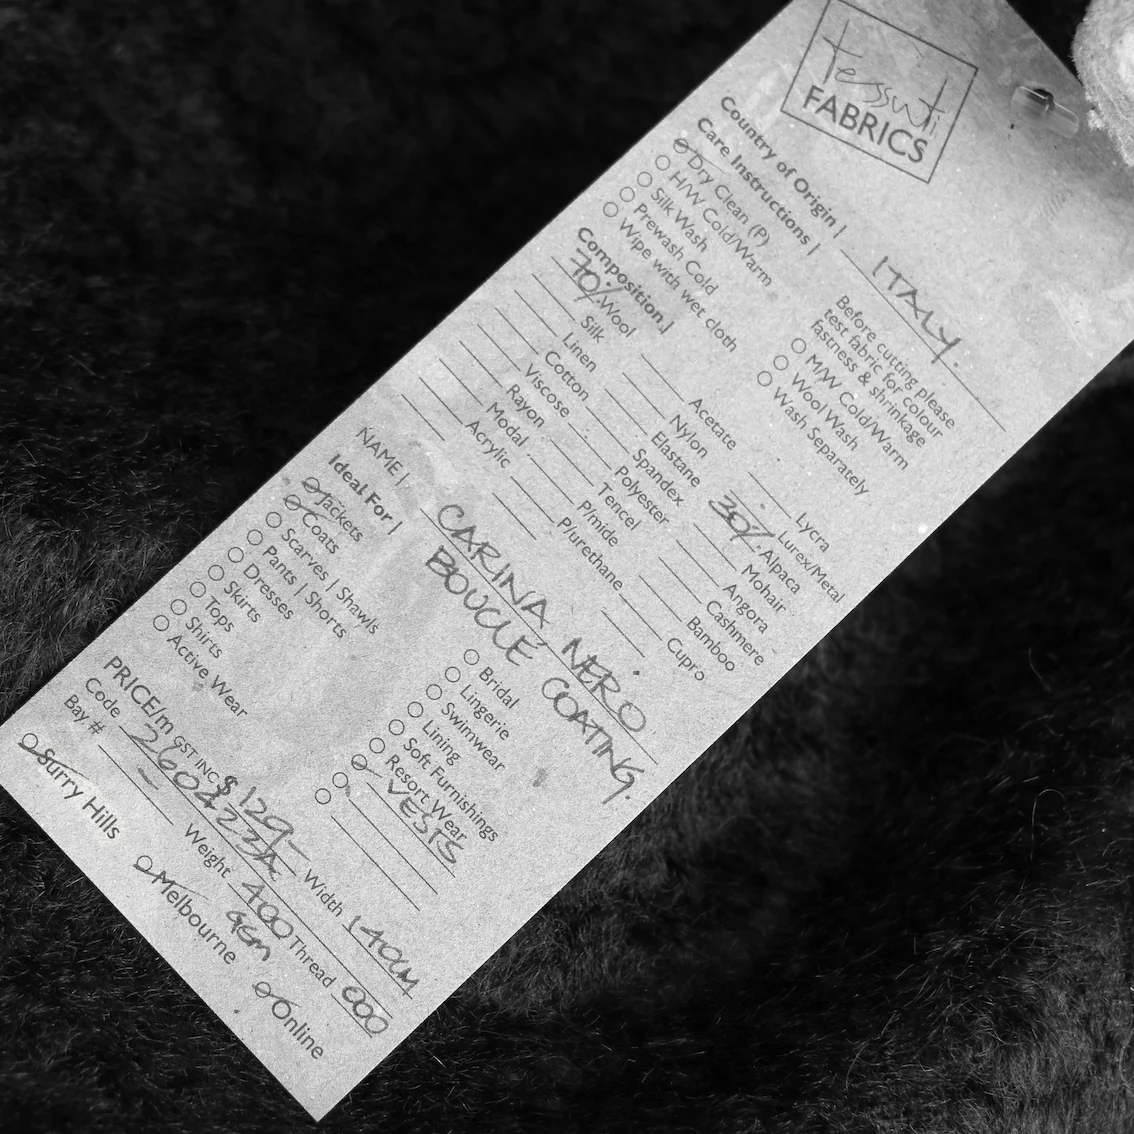 tessuti
FABRICS
Country of Origin | ITALY.
Care Instructions |
Dry Clean (P)
H/W Cold/Warm
Silk Wash
Prewash Cold
Wipe with wet cloth
Before cutting please
test fabric for colour
fastness & shrinkage
M/W Cold/Warm
Wool Wash
Wash Separately
Composition |
70% Wool
Silk
Linen
Cotton
Viscose
Rayon
Modal
Acrylic
Acetate
Nylon
Elastane
Spandex
Polyester
Tencel
P/mide
P/urethane
Lycra
Lurex/Metal
30% Alpaca
Mohair
Angora
Cashmere
Bamboo
Cupro
NAME | CARINA NERO
BOUCLE COATING.
Ideal For |
Jackets
Coats
Scarves | Shawls
Pants | Shorts
Dresses
Skirts
Tops
Shirts
Active Wear
Bridal
Lingerie
Swimwear
Lining
Soft Furnishings
Resort Wear
VESTS
PRICE/m GST INC $ 129- Width 140CM
Code 260423A Weight 400 GSM Thread 000
Bay # -
Surry Hills
Melbourne
Online